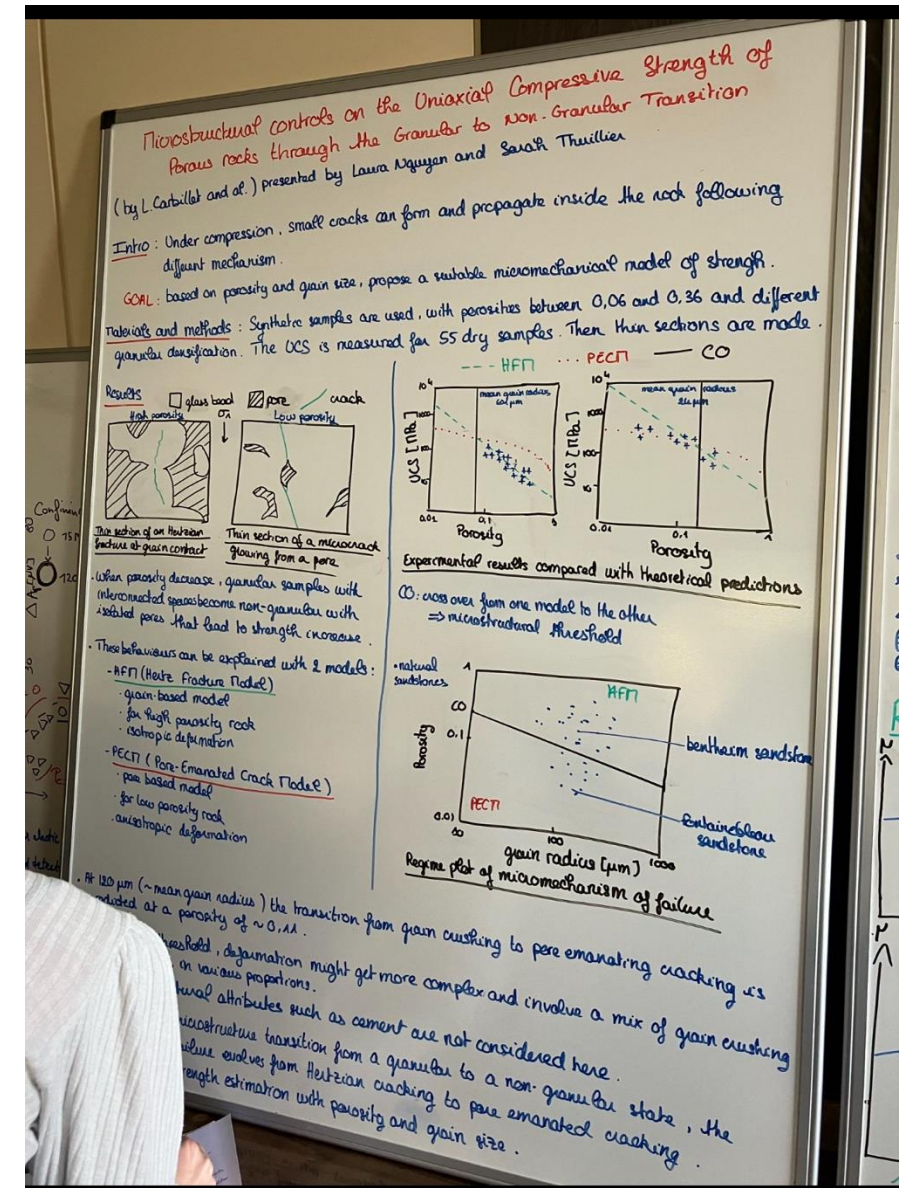 Microstructural controls on the Uniaxial Compressive Strength of
Porous rocks through the Granular to Non-Granular Transition
(by L.Carbillet and al.) presented by Laura Nguyen and Sarah Thuillier
Intro : Under compression, small cracks can form and propagate inside the rock following
different mechanism.
GOAL : based on porosity and grain size, propose a suitable micromechanical model of strengh.
Materials and methods : Synthetic samples are used, with porosities between 0,06 and 0,36 and different
granular densification. The UCS is measured for 55 dry samples. Then thin sections are made.
Results
glass bead
pore
crack
High porosity
σ1
Low porosity
Thin section of an Hertzian
fracture at grain contact
Thin section of a microcrack
growing from a pore
. When porosity decrease, granular samples with
interconnected spaces become non-granular with
isolated pores that lead to strength increase.
. These behaviours can be explained with 2 models :
- HFM (Hertz Fracture Model)
. grain-based model
. for high porosity rock
. isotropic deformation
- PECM (Pore-Emanated Crack Model)
. pore based model
. for low porosity rock
. anisotropic deformation
--- HFM ... PECM — CO
10⁴
1000
100
10
UCS [MPa]
mean grain radius
601 μm
0.01
0.1
1
Porosity
10⁴
1000
100
10
UCS [MPa]
mean grain radius
0.01
0.1
1
Porosity
Experimental results compared with theoretical predictions
CO: cross over from one model to the other
⇒ microstructural threshold
. natural
sandstones
1
CO
0.1
0.01
Porosity
HFM
PECM
bentheim sandstone
Fontainebleau
sandstone
100
1000
grain radius [μm]
Regime plot of micromechanism of failure
. At 120 μm (~mean grain radius) the transition from grain crushing to pore emanating cracking is
at a porosity of ~ 0,11.
deformation might get more complex and involve a mix of grain crushing
in various proportions.
attributes such as cement are not considered here.
microstructure transition from a granular to a non-granular state, the
evolves from Hertzian cracking to pore emanated cracking.
estimation with porosity and grain size.